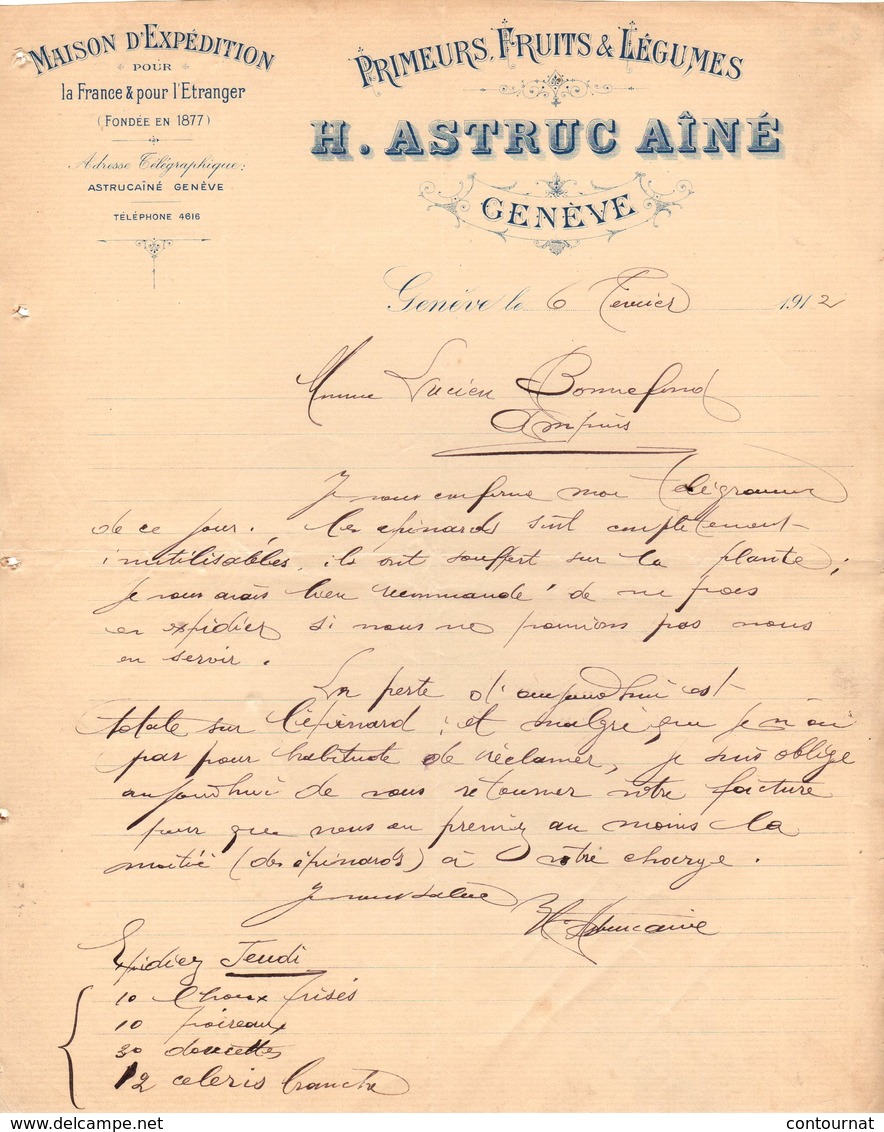 MAISON D'EXPÉDITION
POUR
la France & pour l'Etranger
(FONDÉE EN 1877)
Adresse Télégraphique:
ASTRUCAÎNÉ GENÈVE
TÉLÉPHONE 4616
PRIMEURS, FRUITS & LÉGUMES
H. ASTRUC AÎNÉ
GENÈVE
Genève le 6 Fevrier 1912
Lucien Bonnefond
Ampuis
Je vous confirme mon télégramme
de ce jour. les épinards sont complètement
inutilisables, ils ont souffert sur la plante;
je vous avais bien recommandé de ne pas
en expédier si nous ne pouvions pas nous
en servir.
La perte d'aujourdhui est
totale sur l'épinard; et malgré que je n'ai
pas pour habitude de réclamer, je suis obligé
aujourdhui de vous retourner votre facture
pour que vous en preniez au moins la
moitié (des épinards) à votre charge.
Je vous salue
H. Astruc ainé
Expédiez Jeudi
10 Choux frisés
10 poireaux
30 doucettes
12 celeris branche
www.delcampe.net
contournat